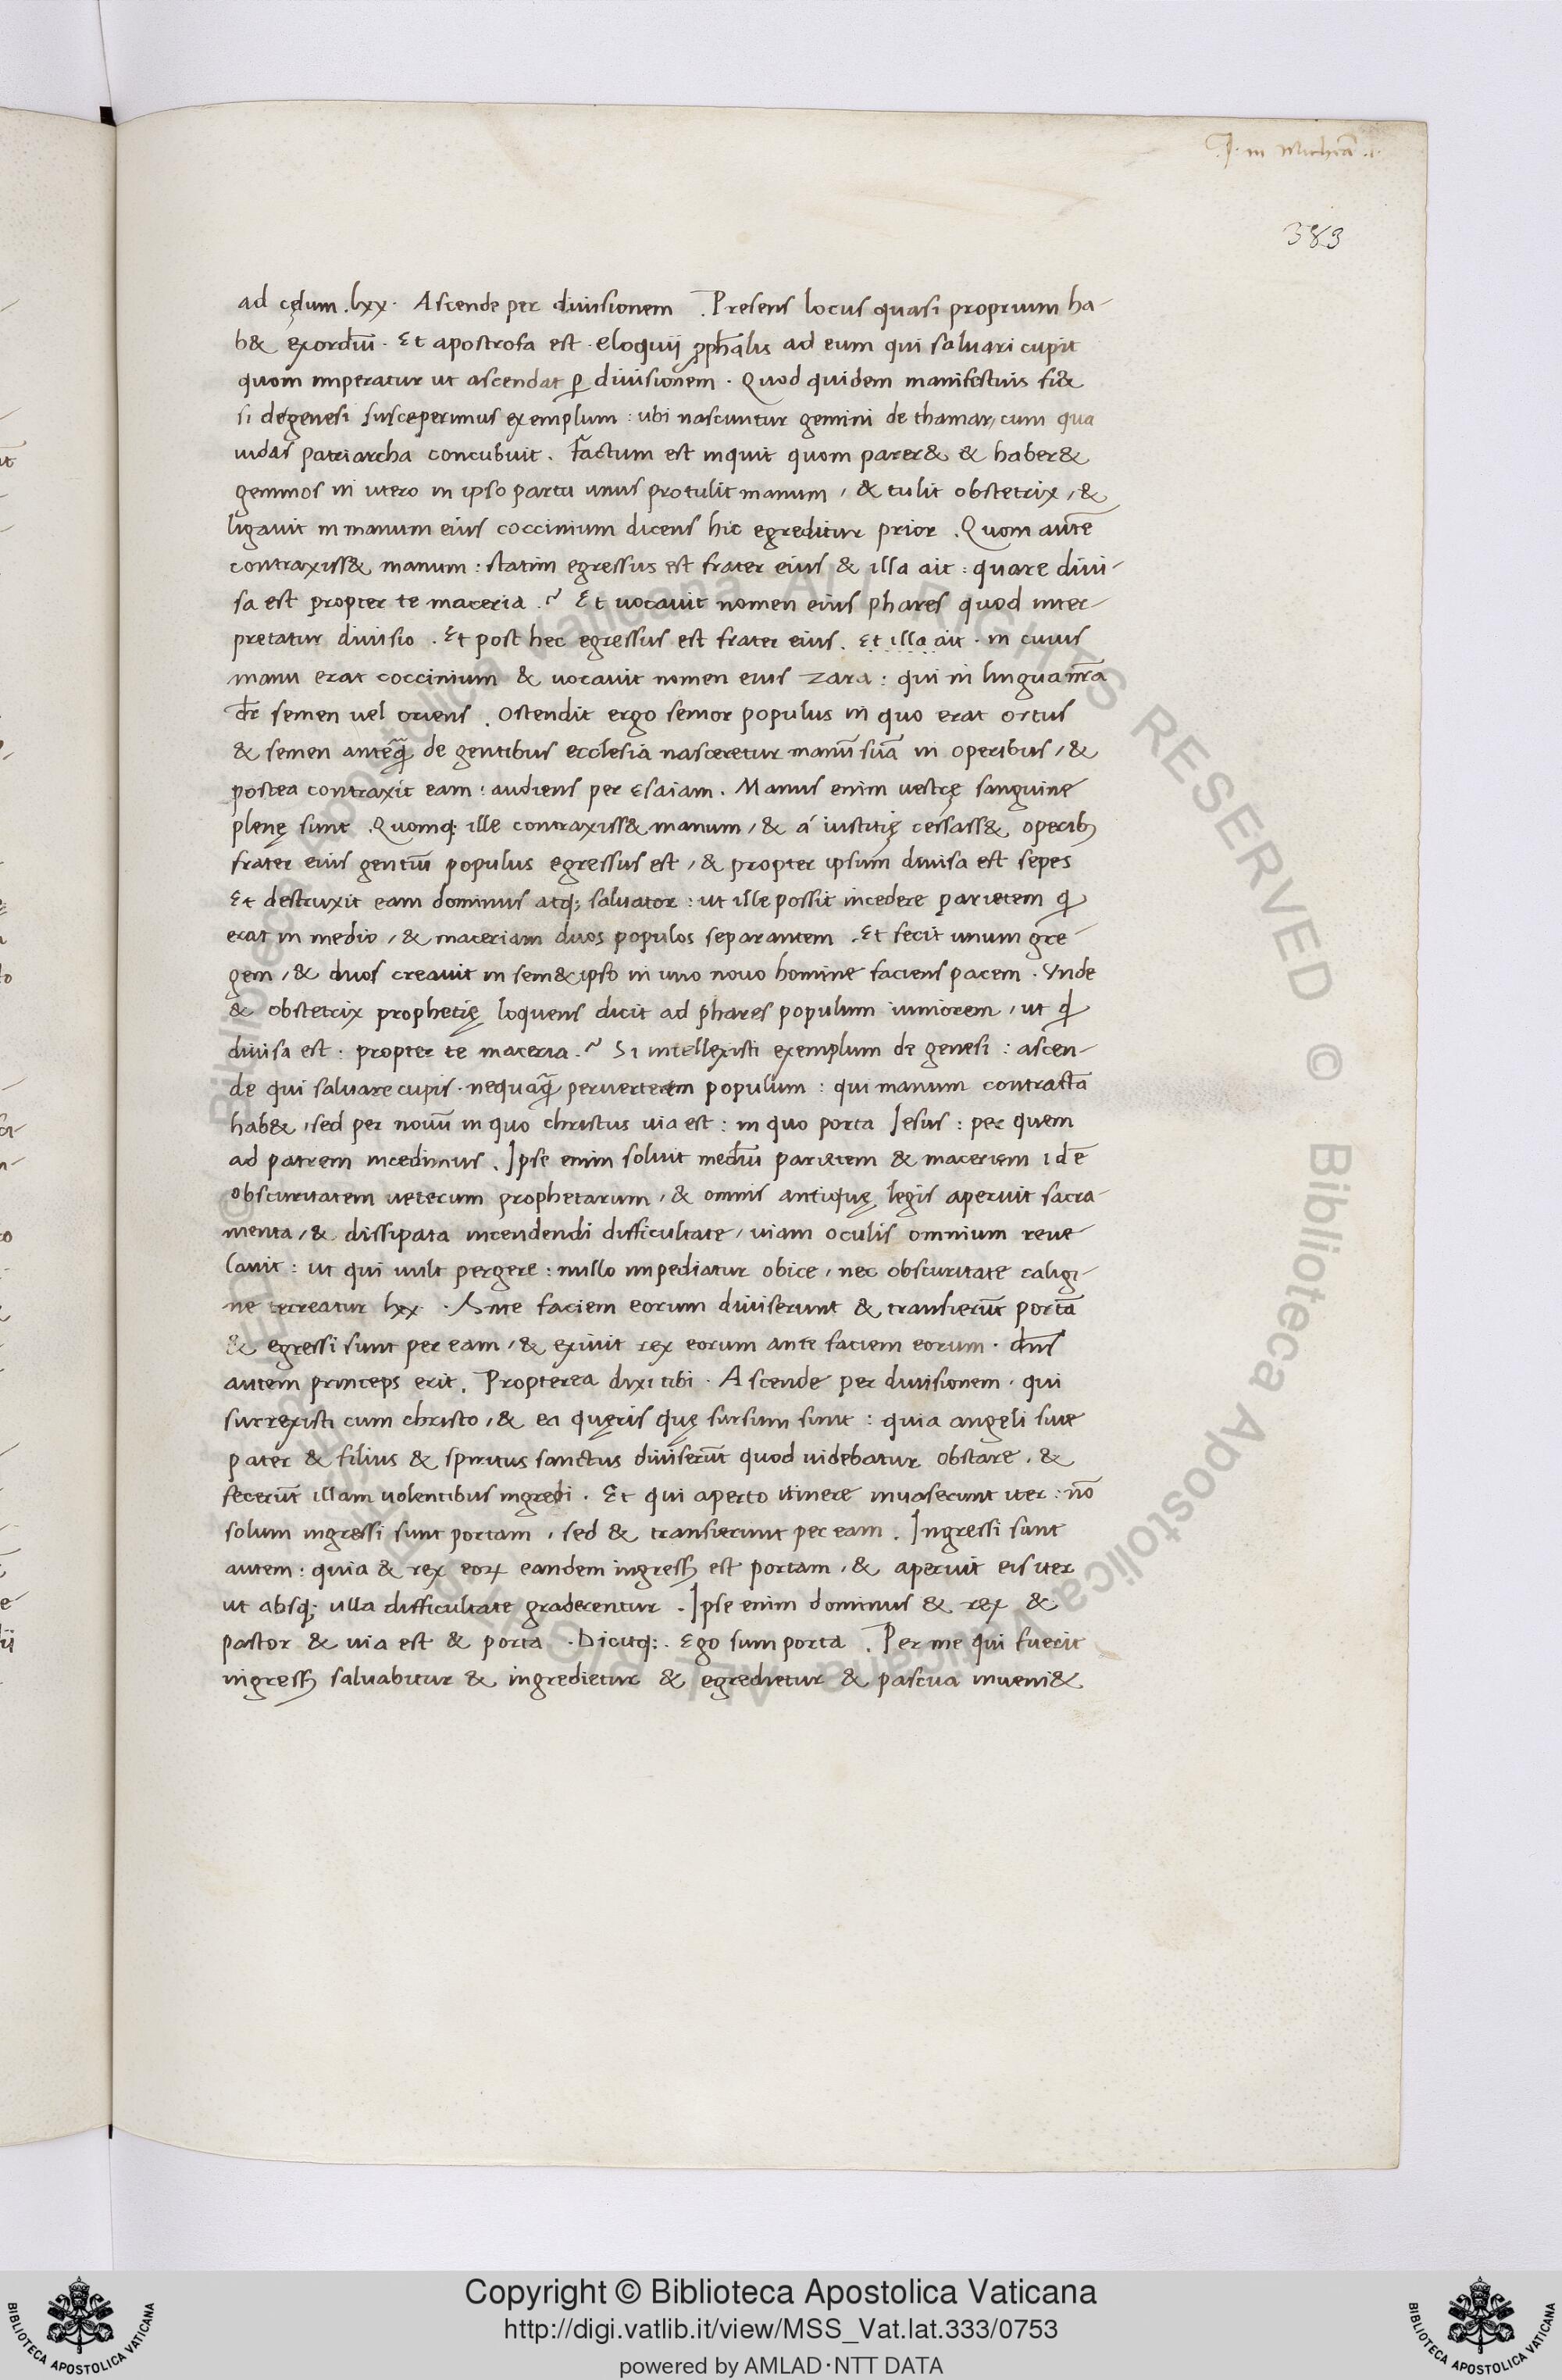 .I. in Michiā .I.
383
ad cędum .lxx. Ascende per diuisionem . Presens locus quasi proprium ha-
b& exordiū . Et apostrofa est . eloquij ꝓph̄alis ad eum qui saluari cupit
quom imperatur ut ascendat ꝑ diuisionem . Quod quidem manifestius fi&
si degenesi susceperimus exemplum : ubi nascuntur gemini de thamar, cum qua
iudas patriarcha concubuit . Factum est inquit quom parer& & haber&
geminos in utero in ipso partu unus protulit manum , & tulit obstetrix , &
ligauit in manum eius coccinium dicens hic egreditur prior . Quom autē
contraxiss& manum : statim egressus est frater eius & illa ait : quare diui-
sa est propter te maceria .~ Et uocauit nomen eius phares quod inter-
pretatur diuisio . Et post hec egressus est frater eius . Et illa ait . in cuius
manu erat coccinium & uocauit nomen eius zara : qui in lingua nr̄a
dr̄ semen uel oriens . Ostendit ergo semor populus in quo erat ortus
& semen anteq̄ de gentibus ecclesia nasceretur manū suā in operibus , &
postea contraxit eam : audiens per esaiam . Manus enim uestrę sanguine
plenę sunt . Quomq; ille contraxiss& manum , & á iustitię cessass& operib;
frater eius gentiū populus egressus est , & propter ipsum diuisa est sepes
Et destruxit eam dominus atq; saluator : ut ille possit incedere parietem ꝙ
erat in medio , & maceriam duos populos separantem . Et fecit unum gre-
gem , & duos creauit in sem&ipso in uno nouo homine faciens pacem . Vnde
& obstetrix prophetię loquens dicit ad phares populum iuniorem , ut ꝙ
diuisa est : propter te maceria .~ Si intellexisti exemplum de genesi : ascen-
de qui saluare cupis . nequaq̄ peruerterem populum : qui manum contractā
hab& , sed per nouū in quo christus uia est : in quo porta Iesus : per quem
ad patrem incedimus . Ipse enim soluit mediū parietem & maceriem idē
obscuritatem ueterum prophetarum , & omnis antiquę legis aperuit sacra-
menta , & dissipata incendendi difficultate , uiam oculis omnium reue
lauit : ut qui uult pergere : nullo impediatur obice , nec obscuritate caligi-
ne terreatur lxx . Ante faciem eorum diuiserunt & transierūt portā
& egressi sunt per eam , & exiuit rex eorum ante faciem eorum . dn̄s
autem princeps erit . Propterea dixi tibi . Ascende per diuisionem . qui
surrexisti cum christo , & ea quęris quę sursum sunt : quia angeli siue
pater & filius & spiritus sanctus diuiserūt quod uidebatur obstare . &
fecerūt illam uolentibus ingredi . Et qui aperto itinere inuaserunt iter : nō
solum ingressi sunt portam , sed & transierunt per eam . Ingressi sunt
autem : quia & rex eoꝝ eandem ingress; est portam , & aperuit eis iter
ut absq; ulla difficultate graderentur . Ipse enim dominus & rex &
pastor & uia est & porta . Dicitq; . Ego sum porta . Per me qui fuerit
ingress; saluabitur & ingredietur & egredietur & pascua inueni&
Copyright © Biblioteca Apostolica Vaticana
http://digi.vatlib.it/view/MSS_Vat.lat.333/0753
powered by AMLAD·NTT DATA